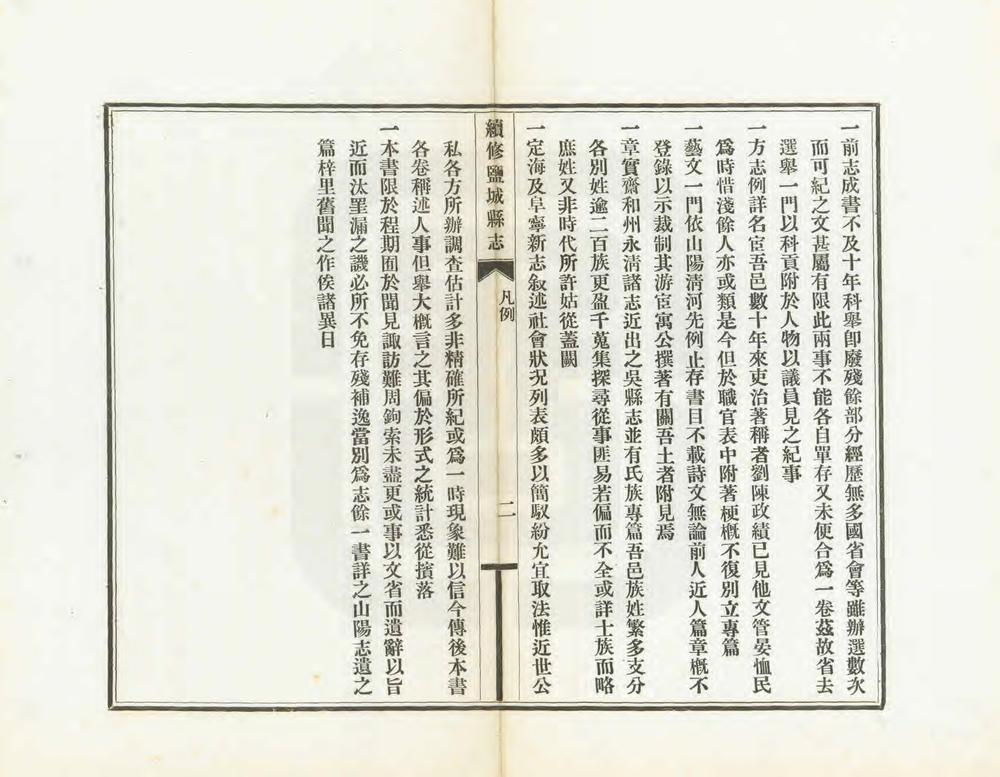 一前志成書不及十年科舉卽廢殘餘部分經歷無多國省會等雖辦選數次
而可紀之文甚屬有限此兩事不能各自單存又未便合爲一卷茲故省去
選舉一門以科貢附於人物以議員見之紀事
一方志例詳名宦吾邑數十年來吏治著稱者劉陳政績已見他文管晏恤民
爲時惜淺餘人亦或類是今但於職官表中附著梗槪不復別立專篇
一藝文一門依山陽淸河先例止存書目不載詩文無論前人近人篇章槪不
登錄以示裁制其游宦寓公撰著有關吾土者附見焉
一章實齋和州永淸諸志近出之吳縣志並有氏族專篇吾邑族姓繁多支分
各別姓逾二百族更盈千蒐集探尋從事匪易若偏而不全或詳士族而略
庶姓又非時代所許姑從蓋闕
一定海及阜寧新志叙述社會狀況列表頗多以簡馭紛允宜取法惟近世公
續修鹽城縣志
凡例
二
私各方所辦調查估計多非精確所紀或爲一時現象難以信今傳後本書
各卷稱述人事但舉大槪言之其偏於形式之統計悉從擯落
一本書限於程期囿於聞見諏訪難周鉤索未盡更或事以文省而遺辭以旨
近而汰罣漏之譏必所不免存殘補逸當別爲志餘一書詳之山陽志遺之
篇梓里舊聞之作俟諸異日